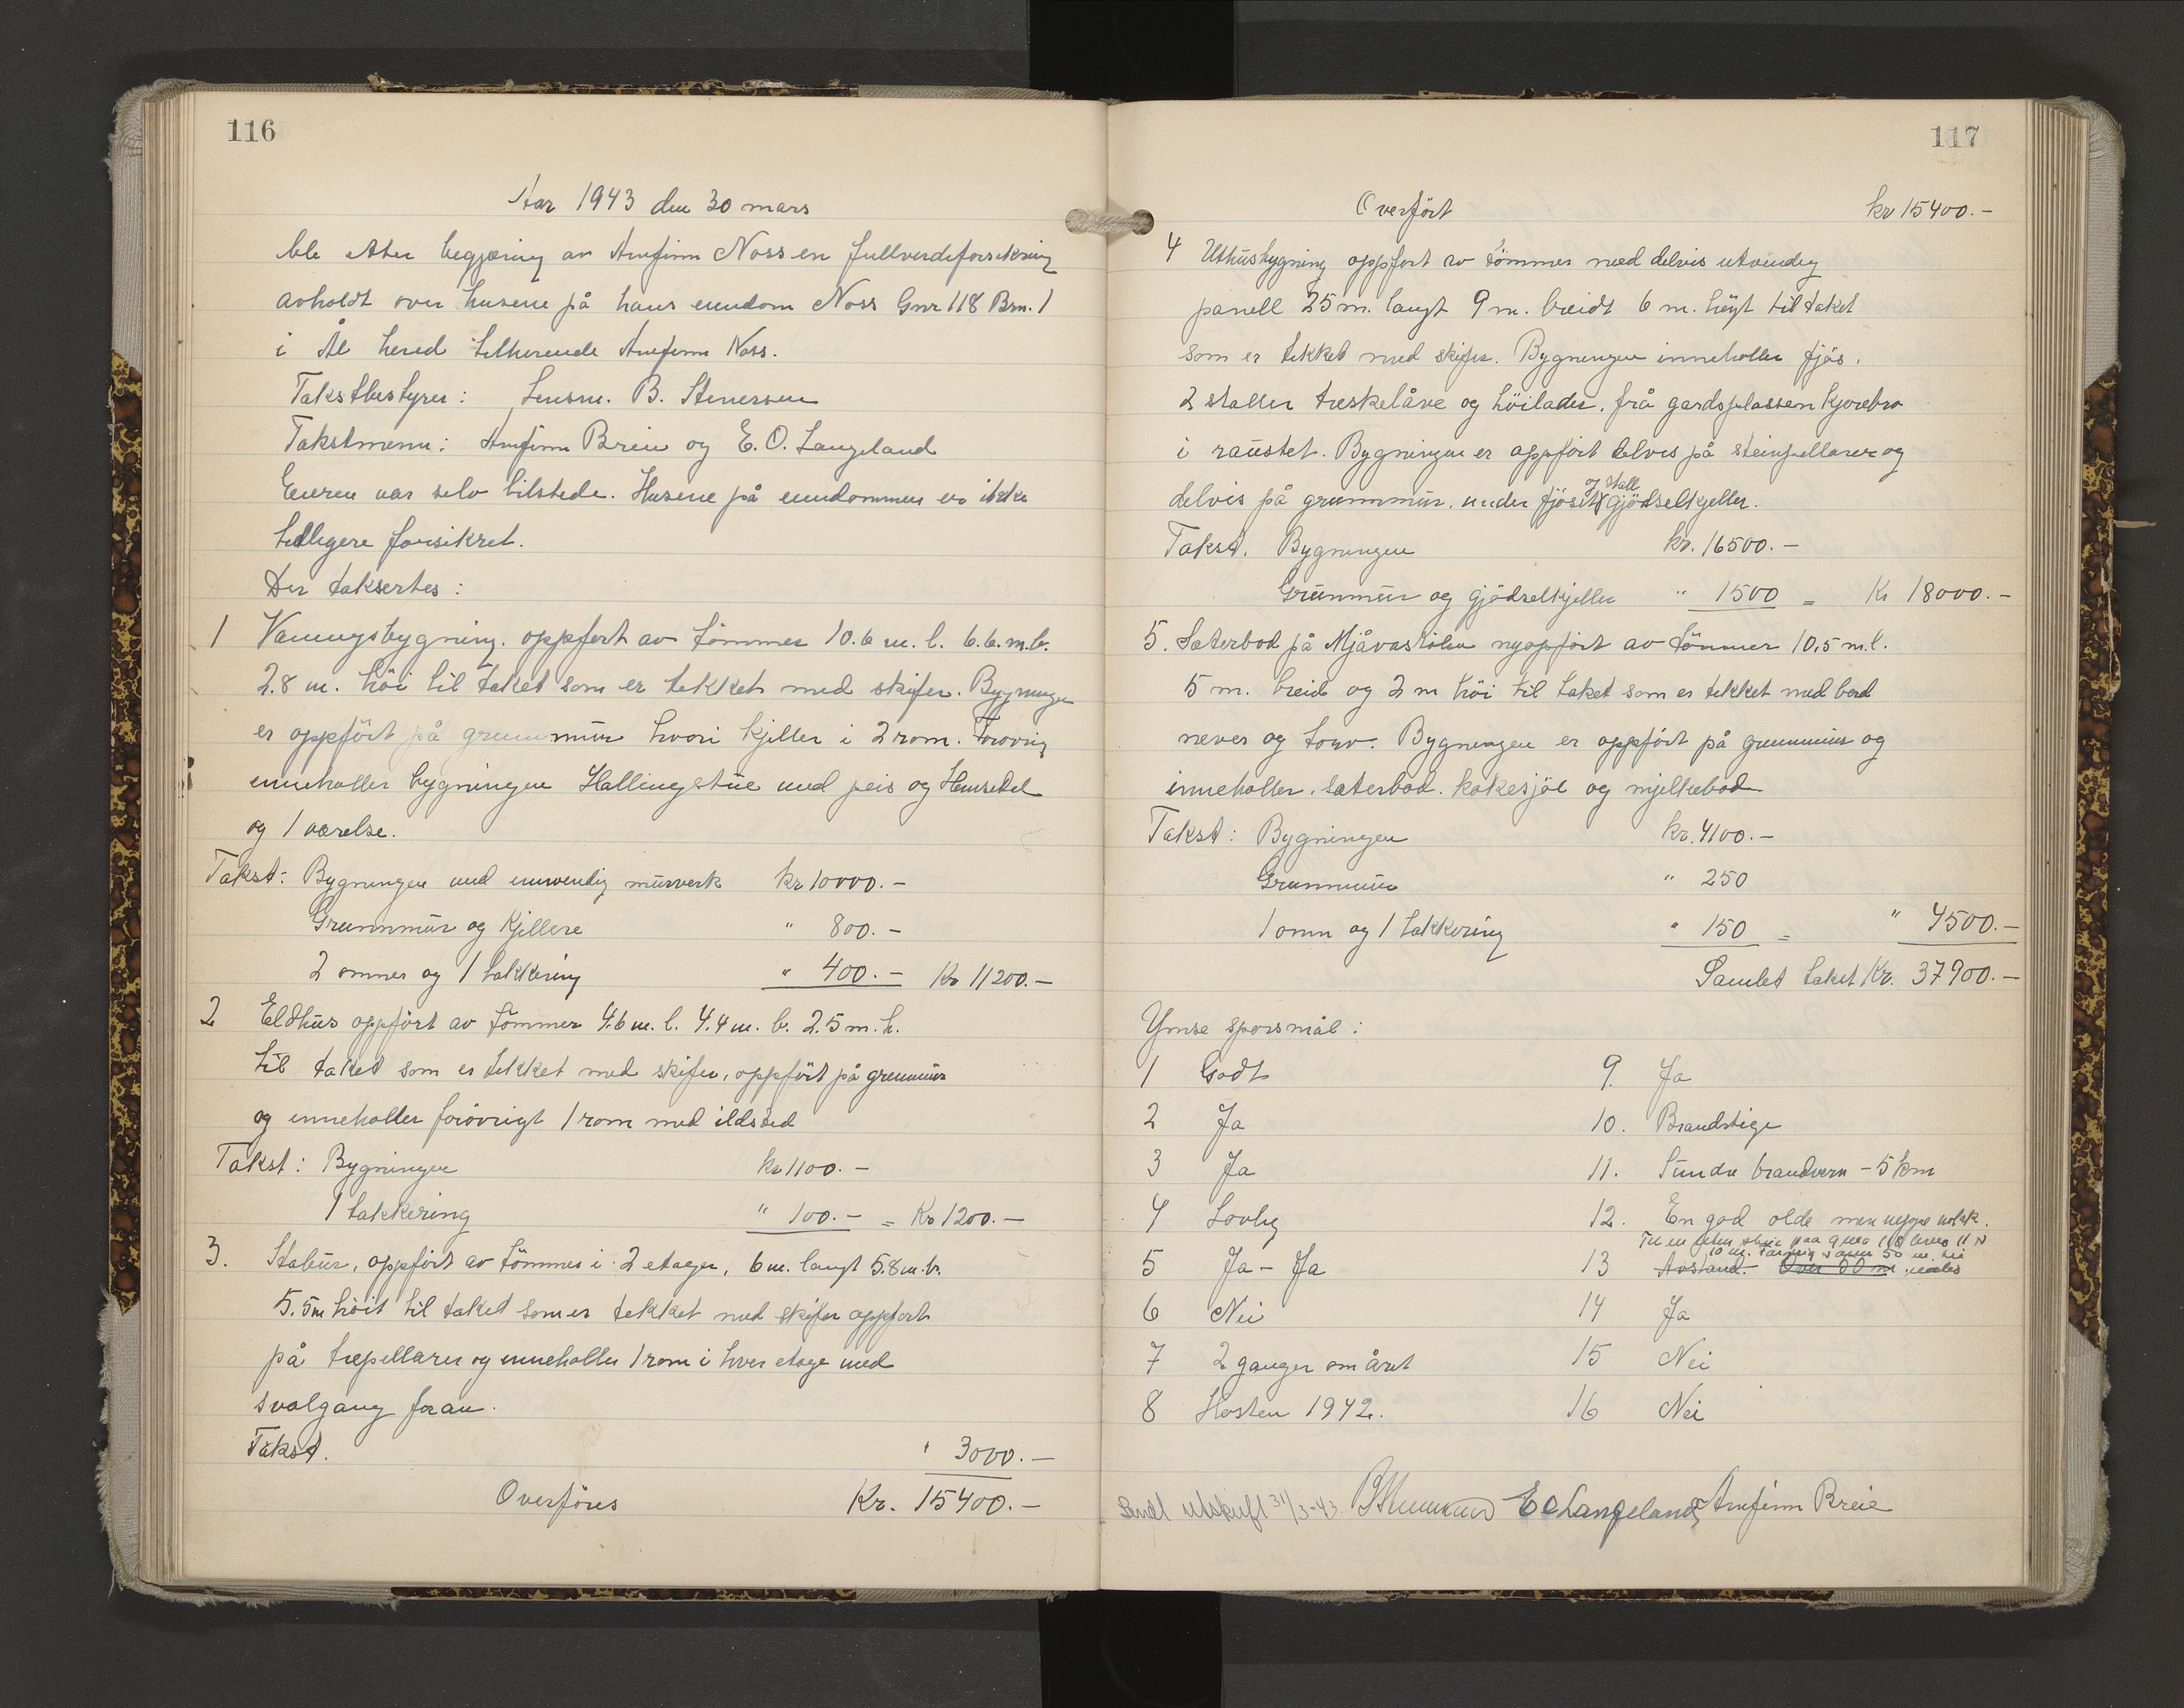 116
Aar 1943 den 30 mars
ble etter begjæring av Arnfinn Noss en fullverdiforsikring
avholdt over husene på hans eiendom Noss Gnr 118 Brn. 1
i Ål hered tilhørende Arnfinn Noss.
Takstbestyrer: Lensm. B. Stenersen
Takstmenn: Arnfinn Breie og E. O. Langeland
Eieren var selv tilstede. Husene på eiendommen er ikke
tidligere forsikret.
Der taksertes:
1 Vaaningsbygning. oppført av tömmer 10.6 m. l. 6.6. m. b.
2.8 m. höi til taket som er tekket med skifer. Bygningen
er oppfört på grunnmür hvori kjeller i 2 rom. Forövrig
inneholler bygningen Hallingstüe med peis og Hemsedel
og 1 værelse.
Takst: Bygningen med innvendig mürverk kr 10000.-
Grunnmür og Kjellere " 800.-
2 omner og 1 takkering " 400.- Kr 11200.-
2 Eldhüs oppfört av tömmer 4.6 m. l. 4.4 m. b. 2.5 m. h.
til taket som er tekket med skifer, oppfört på grunnmür
og inneholler forövrigt 1 rom med ildsted
Takst: Bygningen kr 1100.-
1 takkering " 100.- = Kr 1200.-
3. Stabür, oppfört av tömmer i 2 etager, 6 m. langt 5.8 m. br.
5.5m höit til taket som er tekket med skifer oppført
på trepellarer og inneholler 1 rom i hver etage med
svalgang foran.
Takst. " 3000.-
Overföres Kr. 15400.-
117
Overfört kr 15400.-
4 Uthüsbygning oppført av tömmer med delvis utvendig
panell 25 m. langt 9 m. breidt 6 m. høyt til taket
som er tekket med skifer. Bygningen inneholler fjös.
2 staller treskelåve og höilader. frå gardsplassen kjorebro
i raüstet. Bygningen er oppfört delvis på steinpellarer og
delvis på grunnmür. under fjöset og stall gjödselkjeller.
Takst. Bygningen kr. 16500.-
Grünnmür og gjödselkjeller " 1500 = Kr 18000.-
5. Sæterbod på Mjåvastölen nyoppfört av tömmer 10,5 m. l.
5 m. breid og 2 m höi til taket som er tekket med bord
never og torv. Bygningen er oppfört på grunnmür og
inneholler. sæterbod. kokesjöl og mjelkebod
Takst: Bygningen kr. 4100.-
Grunnmür " 250
1 omn og 1 takkering " 150 = " 4500.-
Samlet takst Kr. 37900.-
Ymse sporsmål:
1 Godt
2 Ja
3 Ja
4 Lovlig
5 Ja - Ja
6 Nei
7 2 ganger om året
8 Høsten 1942.
9. Ja
10. Brandstige
11. Sundre brandvern - 5 km
12. En god olde men neppe nokk.
13 Avstand. Over 50 m
14 Ja
15 Nei
16 Nei
Sendt utskrift 31/3-43. BStenersen E O Langeland Arnfinn Breie